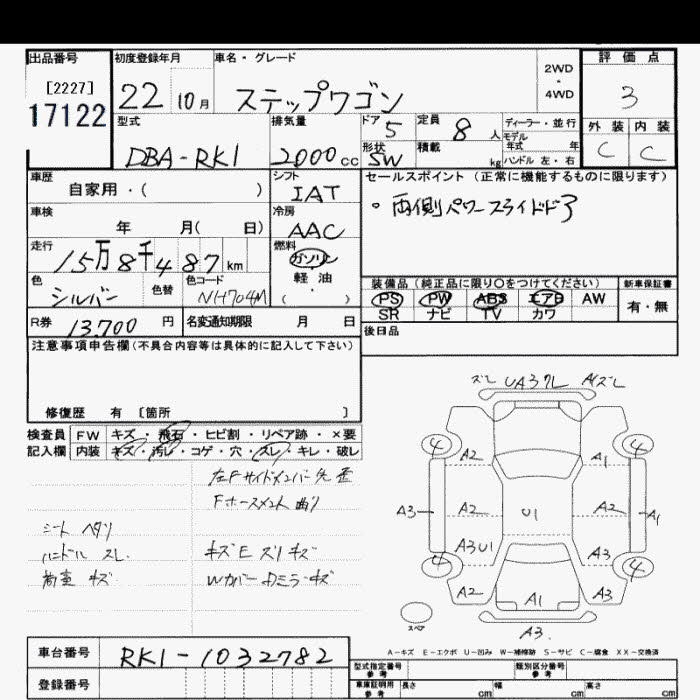 出品番号 初度登録年月 車名・グレード 評価点
[2227]
17122
22 10月 ステップワゴン 2WD・4WD 3
型式 排気量 ドア 5 定員 8人 ディーラー・並行
モデル年式 年 外装 内装
DBA-RK1 2000cc 形状 SW 積載 kg ハンドル 左・右 C C
車歴 シフト セールスポイント(正常に機能するものに限ります)
自家用・( ) IAT
・両側パワースライドドア
車検 冷房
年 月( 日) AAC
走行 燃料
15万8千487km ガソリン
軽油
( ・ )
色 色替 色コード
シルバー NH704M
装備品(純正品に限り〇をつけてください) 新車保証書
PS PW ABS エアB AW 有・無
SR ナビ TV カワ
R券 13700円 名変通知期限 月 日
後日品
注意事項申告欄(不具合内容等は具体的に記入して下さい)
修復歴 有 〔箇所 〕
検査員 FW キズ・飛石・ヒビ割・リペア跡・×要
記入欄 内装 キズ・汚レ・コゲ・穴・スレ・キレ・破レ
左Fサイドメンバー先歪
Fホースメント曲り
シート ヘタリ
ハンドル スレ
荷室 キズ
キズE スリキズ
Wカバー Dミラーキズ
ズレ UA3クレ A1ズレ
4 4
A2 A1
A3 A2 U1 A2 A1
A3U1 A3
4 4
A2 A1 A3
スペア
A3
A-キズ E-エクボ U-凹み W-補修跡 S-サビ C-腐食 XX-交換済
車台番号 RK1-1032782
型式指定番号 参考 類別区分番号 参考
登録番号 車庫証明用 参考 長さ cm 幅 cm 高さ cm